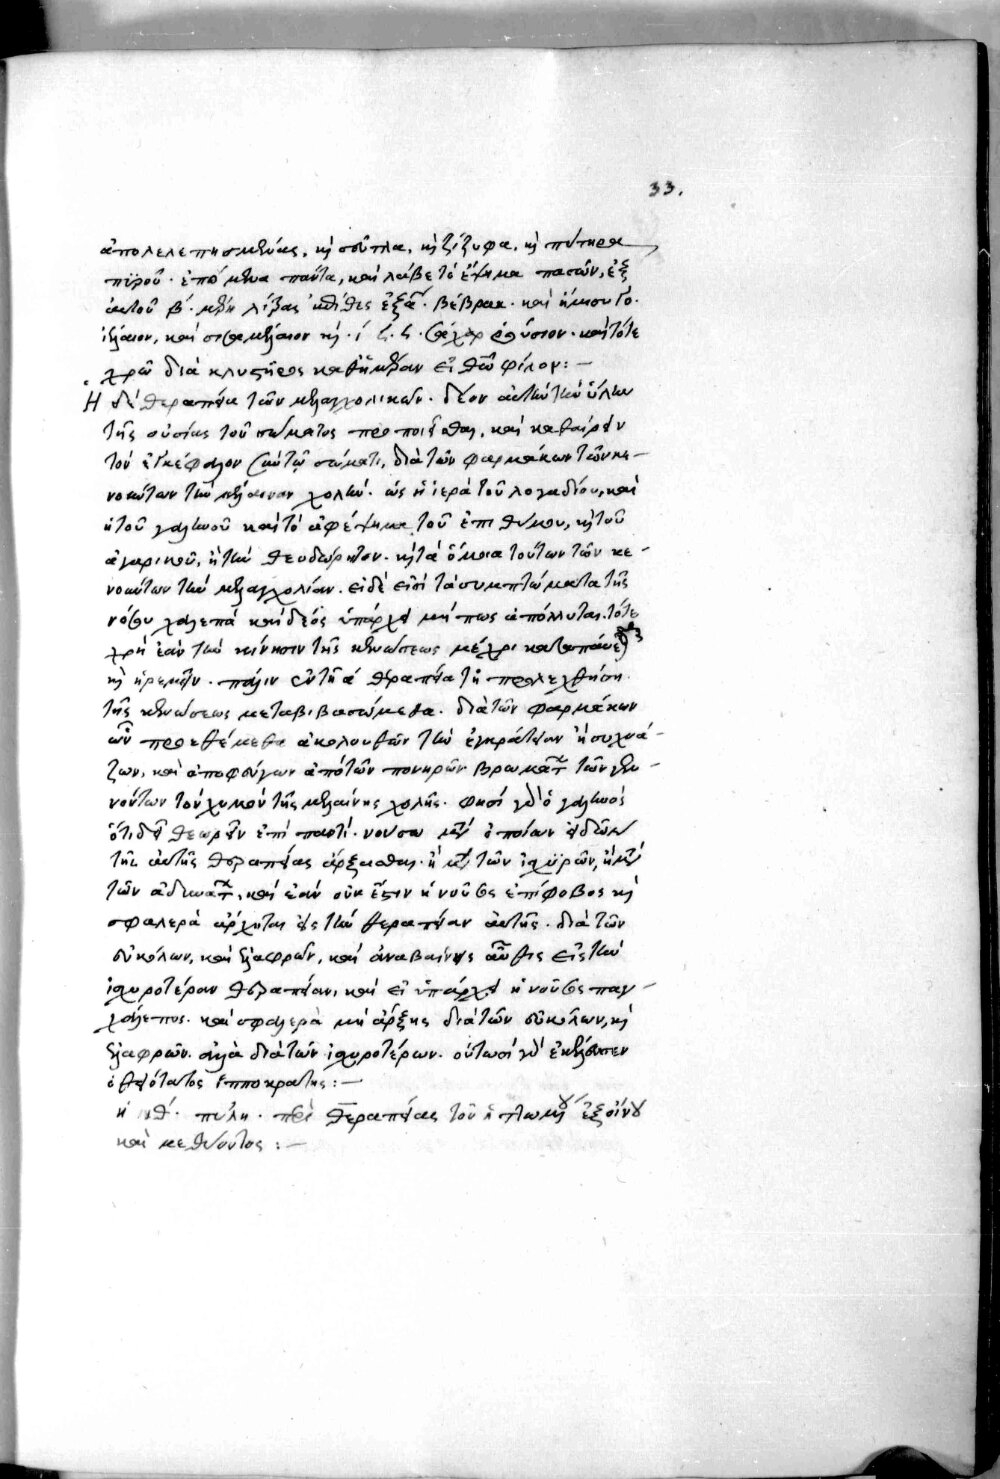 33.
ἀπολελεπισμένας, καὶ σεῦτλα, καὶ ζίζυφα, καὶ πίτηρα
πυροῦ. ἑπόμενα πάντα, καὶ λάβε τὸ ἕψημα πασῶν, ἐξ
αὐτοῦ β΄.
ἰέλαιον, καὶ σισαμέλαιον καὶ
χρῶ διὰ κλυστῆρος καθ' ἡμέραν εἰ θεῶ φίλον:—
Ἡ δὲ θεραπεία τῶν μελαγχολικῶν. δέον αὐτὴν τὴν ὕλην
τῆς οὐσίας τοῦ σώματος προποιεῖσθαι, καὶ καθαίρειν
τὸν ἐγκέφαλον σὺν τῷ σώματι, διὰ τῶν φαρμάκων τῶν κε-
νούντων τὴν μέλαιναν χολήν. ὡς ἡ ἱερὰ τοῦ λογαδίου, καὶ
ἡ τοῦ γαληνοῦ καὶ τὸ ἀφέψημα τοῦ ἐπιθύμου, καὶ τοῦ
ἀγαρικοῦ, ἢ τὴν θεοδώρητον. καὶ τὰ ὅμοια τούτων τῶν κε-
νούντων τὴν μελαγχολίαν. εἰ δὲ εἰσὶ τὰ συμπτώματα τῆς
νόσου χαλεπὰ καὶ δέος ὑπάρχει μήπως ἀπόλλυται. τότε
χρὴ ἐᾶν τὴν κίνησιν τῆς κενώσεως μέχρι καταπαύσει
καὶ ἠρεμεῖν. πάλιν ἐν τῇ θεραπεία τῇ προλεχθείση.
τῆς κενώσεως μεταβιβασώμεθα. διὰ τῶν φαρμάκων
ὧν προεθέμεθα ἀκολουθῶν τὴν ἐγκράτειαν ἡσυχά-
ζων, καὶ ἀποφεύγων ἀπὸ τῶν πονηρῶν βρωμάτων τῶν γεν-
νούντων τὸν χυμὸν τῆς μελαίνης χολῆς. φησὶ γὰρ ὁ γαληνὸς
ὅτι δεῖ θεωρεῖν ἐπὶ παντὶ νούσω μετὰ ὁποίων εἰδῶν
τῆς αὐτῆς θεραπείας ἄρξασθαι. ἢ μετὰ τῶν ἰσχυρῶν, ἢ μετὰ
τῶν ἀδυνάτων, καὶ ἐὰν οὐκ ἔστιν ἡ νοῦσος ἐπίφοβος καὶ
σφαλερὰ ἄρχεται εἰς τὴν θεραπείαν αὐτῆς. διὰ τῶν
εὐκόλων, καὶ ἐλαφρῶν, καὶ ἀναβαίνεις αὖθις εἰς τὴν
ἰσχυροτέραν θεραπείαν, καὶ εἰ ὑπάρχει ἡ νοῦσος παγ-
χάλεπος. καὶ σφαλερὰ μὴ ἄρξης διὰ τῶν εὐκόλων, καὶ
ἐλαφρῶν. ἀλλὰ διὰ τῶν ἰσχυροτέρων. οὕτωσὶ γὰρ ἐκέλευσεν
ὁ θειότατος ἱπποκράτης:—
ἡ ιθ΄. πύλη. περὶ θεραπείας τοῦ ἡπλωμένου ἐξ οἴνου
καὶ μεθύοντος:—